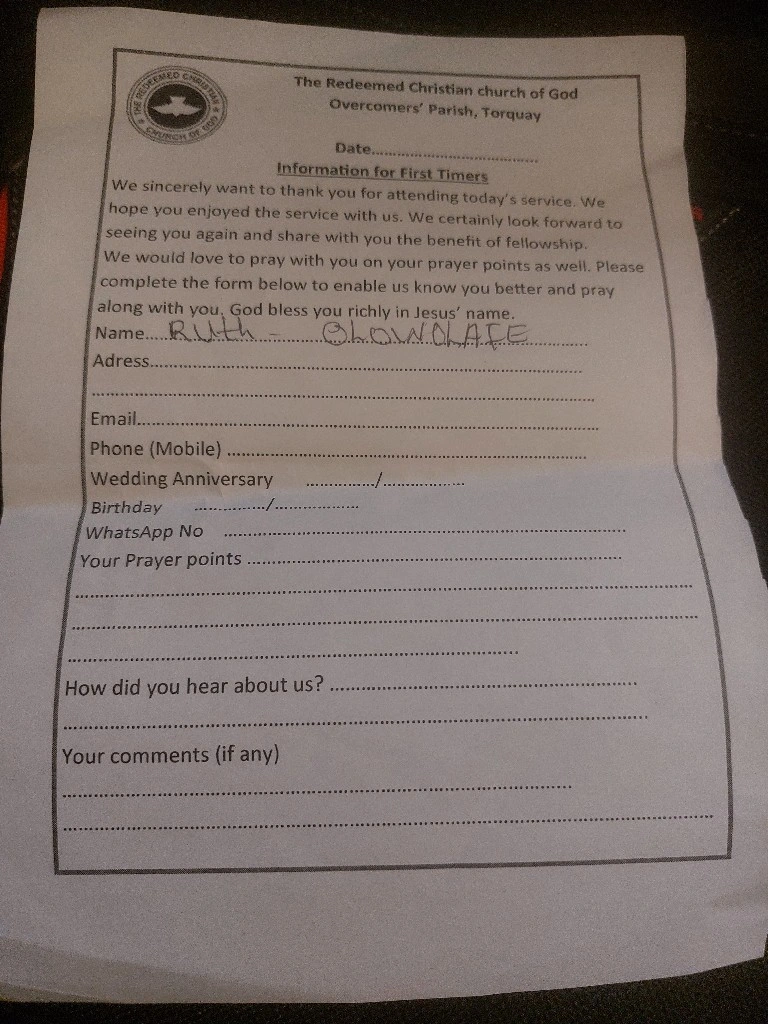 THE REDEEMED CHRISTIAN
CHURCH OF GOD
The Redeemed Christian church of God
Overcomers' Parish, Torquay
Date..............................................
Information for First Timers
We sincerely want to thank you for attending today's service. We
hope you enjoyed the service with us. We certainly look forward to
seeing you again and share with you the benefit of fellowship.
We would love to pray with you on your prayer points as well. Please
complete the form below to enable us know you better and pray
along with you. God bless you richly in Jesus' name.
Name....Ruth - OLOWOLAFE..............
Adress..............................................................................
..............................................................................
Email..............................................................................
Phone (Mobile) ..............................................................
Wedding Anniversary ............../.................
Birthday ............../.................
WhatsApp No ..............................................................................
Your Prayer points ..............................................................................
..............................................................................
..............................................................................
..............................................................................
How did you hear about us? ..............................................................
..............................................................................
Your comments (if any)
..............................................................................
..............................................................................